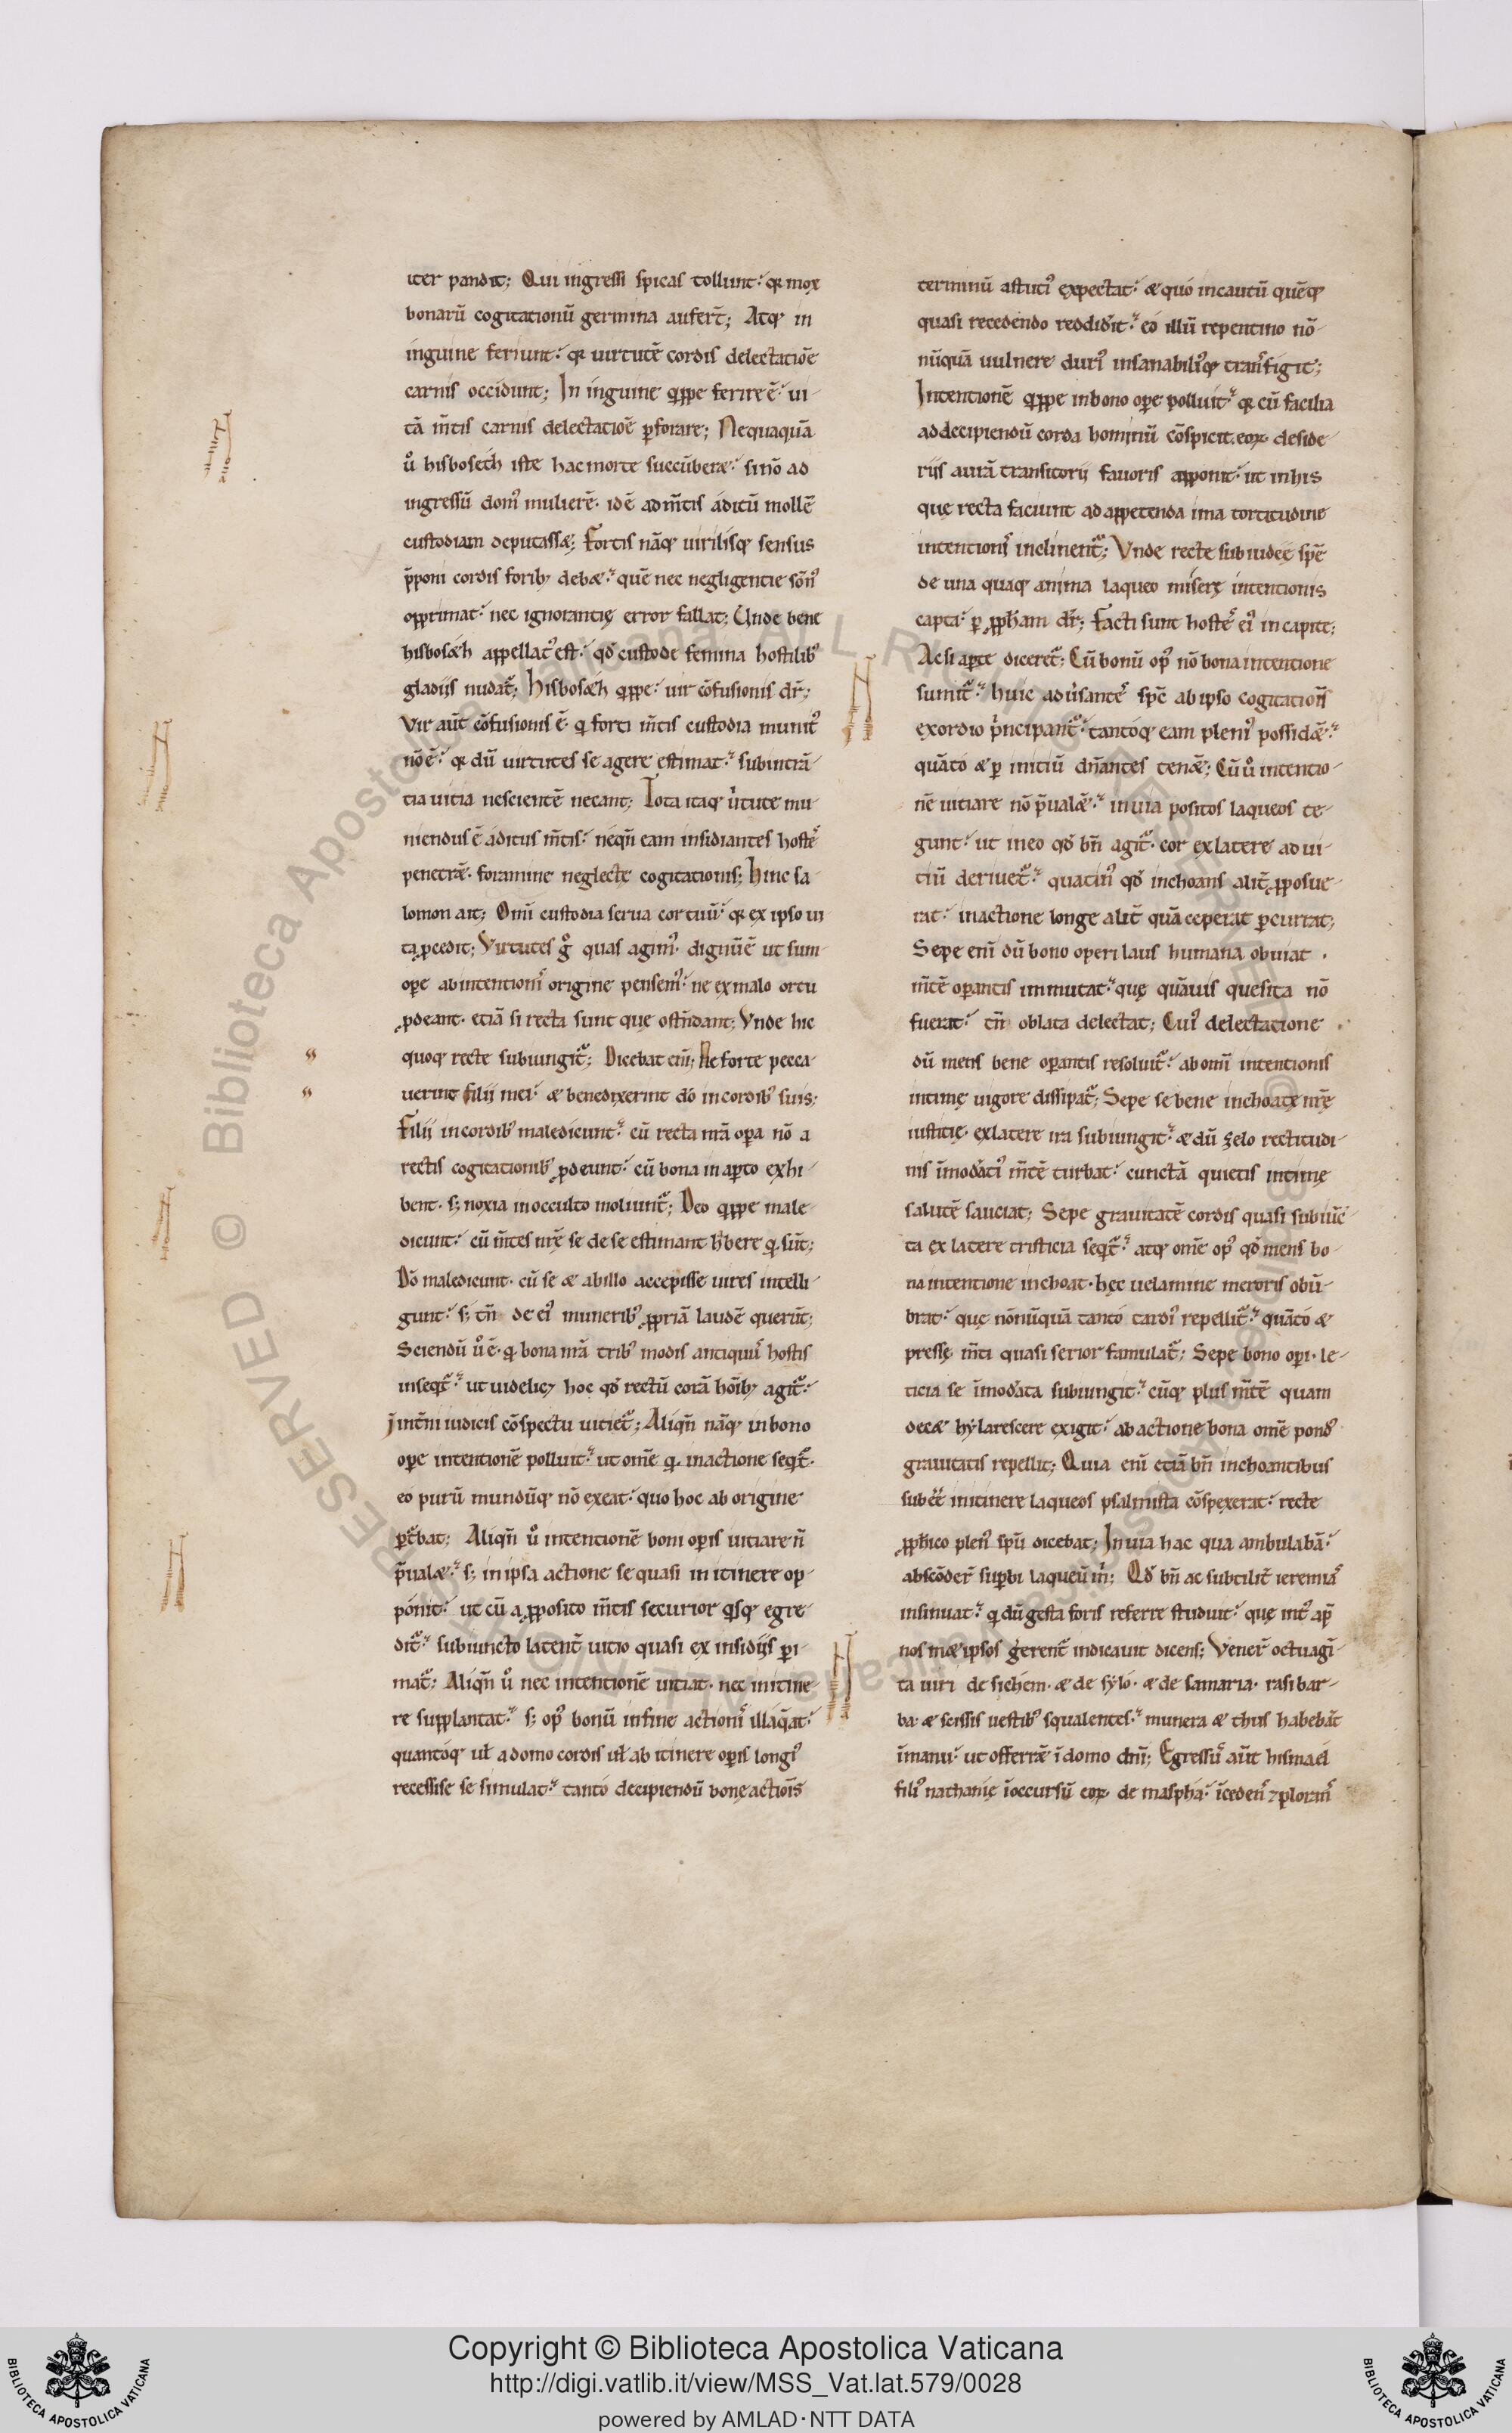 iter pandit; Qui ingressi spicas tollunt: qꝛ mox
bonarū cogitationū germina aufert̄; Atq; in
inguine feriunt: qꝛ uirtutē cordis delectatiōe
carnis occidunt; In inguine q̱ppe ferire ē: ui-
tā m̄tis carnis delectatiōe ꝑforare; Nequaquā
ů hisboseth iste hac morte succūberæ: si nō ad
ingressū dom᾽ mulierē. idē ad m̄tis áditū mollē
custodiam deputassæ; Fortis nāq; uirilisq; sensus
p̄poni cordis forib; debæ: quē nec negligentie sōn᾽
opprimat: nec ignorantię error fallat; Unde bene
hisbosæh appellat᾽ est: qđ custode femina hostilib᾽
gladiis nudat᷑; hisbosæh q̱ppe: uir cōfusionis dr̄;
Vir aūt cōfusionis ē. q̱ forti m̄tis custodia munit᾽
nō ē: qꝛ dū uirtutes se agere estimat: subintrā-
tia uitia nescientē necant; Tota itaq; u̓tute mu-
niendus ē áditus m̄tis: neqn̄ eam insidiantes hostē᾽
penetræ. foramine neglectę cogitationis; hinc sa-
lomon ait; Omī custodia serua cor tuū: qꝛ ex ipso ui
ta ꝓcedit; Virtutes g̊ quas agim᾽. dignū ē ut sum-
oꝑe ab intention᾽ origine pensem᾽: ne ex malo ortu
ꝓdeant. etiā si recta sunt que ostn̄dant; Vnde hic
quoq; recte subiungit᷑; Dicebat eni; Ne forte pecca-
uerint filii mei: æ benedixerint dō in cordib᾽ suis;
Filii in cordib᾽ maledicunt: cū recta nr̄a oꝑa nō a
rectis cogitationib᾽ ꝓdeunt: cū bona in aꝑto exhi-
bent. s; noxia in occulto moliunt᷑; Deo q̱ppe male-
dicunt: cū m̄tes nr̄ę se de se estimant h̄bere q̱ sūt;
Dō maledicunt. cū se æ ab illo accepisse uires intelli-
gunt: s; tn̄ de ei᾽ munerib᾽ ꝓpriā laudē querūt;
Sciendū ů ē. q̱ bona nr̄a trib᾽ modis antiquu᾽ hostis
inseqt᷑: ut uidelicꝫ hoc qđ rectū corā hōib; agit᷑:
int̄ni iudicis cōspectu uitiet᷑; Aliqn̄ nāq; in bono
oꝑe intentionē polluit: ut omē q̱ in actione seqt᷑.
eo purū mundūq; nō exeat: quo hoc ab origine
ꝑt᷑bat; Aliqn̄ ů intentionē boni oꝑis uitiare n̄
p̄ualæ: s; in ipsa actione se quasi in itinere op-
ponit: ut cū a ꝓposito m̄tis securior q̱sq; egre-
dit᷑: subiuncto latent̄ uitio quasi ex insidiis ꝑi-
mat᷑; Aliqn̄ ů nec intentionē uitiat. nec in itine-
re supplantat: s; op᾽ bonū in fine action᾽ illáq̄at:
quantóq; uł a domo cordis uł ab itinere oꝑis longi᾽
recessisse se simulat: tanto decipiendū bonę actiōis
terminū astuti᾽ expectat: æ quó incautū quēq;
quasi recedendo reddid̓it: eó illū repentino nō-
nūquā uulnere duri᾽ insanabili᾽q; trans᾽figit;
Intentionē q̱ppe in bono oꝑe polluit: qꝛ cū facilia
ad decipiendū corda hominū cōspicit. eoꝝ deside-
riis aurā transitorii fauoris apponit: ut in his
quę recta faciunt ad appetenda ima tortitudine
intention᾽ inclinent᷑; Vnde recte sub iudeę spē
de una quaq; anima laqueo miserę intentionis
capta: ꝑ ꝓph̄am dr̄; Facti sunt hostē᾽ ei᾽ in capite;
Ac si aꝑte diceret᷑; Cū bonū op᾽ nō bona intentione
sumit᷑: huic adu̓santē᾽ spc̄ ab ipso cogitationis
exordio p̓ncipant᷑: tantóq; eam pleni᾽ possidǣ:
quāto æ ꝑ initiū dn̄antes tenǣ; Cū ů intentio-
nē uitiare nō p̄ualǣ: in uia positos laqueos te-
gunt: ut in eo qđ bn̄ agit᷑. cor ex latere ad ui-
tiū deriuet᷑: quatin᾽ qđ inchoans alit̄ ꝓposue-
rat: in actione longe alit̄ quā ceperat ꝑcurrat;
Sepe eni dū bono operi laus humana obuiat .
m̄tē oꝑantis immutat: quę quāuis quesita nō
fuerat: tn̄ oblata delectat; Cui᾽ delectatione
dū mens bene oꝑantis resoluit᷑: ab omi intentionis
intimę uigore dissipat᷑; Sepe se bene inchoatę nr̄ę
iustitię. ex latere ira subiungit: æ dū zelo rectitudi-
nis īmod̓ati᾽ m̄tē turbat: cunctā quietis intimę
salutē sauciat; Sepe grauitatē cordis quasi subiūc-
ta ex latere tristicia seqt᷑: atq; omē op᾽ qđ mens bo-
na intentione inchoat. hęc uelamine meroris obū-
brat: quę nōnūquā tanto tardi᾽ repellit᷑: quāto æ
pressę m̄ti quasi serior famulat᷑; Sepe bono oꝑi. le-
ticia se īmod̓ata subiungit: cūq; plus m̄tē quam
decæ hylarescere exigit: ab actione bona omē pond᾽
grauitatis repellit; Quia eni etiā bn̄ inchoantibus
subēē in itinere laqueos psalmista cōspexerat: recte
ꝓph̄ico plen᾽ spū dicebat; In uia hac qua ambulabā:
abscōder̄ suꝑbi laqueū m̓; Qđ bn̄ ac subtilit̄ ieremia᾽
insinuat: q̱ dū gesta foris referre studuit: quę int᾽ ap̄
nos mæipsos gerent᷑ indicauit dicens; Vener̄ octuagī-
ta uiri de sichem. æ de sylo. æ de samaria. rasi bar-
ba. æ scissis uestib᾽ squalentes: munera æ thus habebāt
īmanu: ut offerrǣ ī domo dnī; Egressu᾽ aūt hismael
fili᾽ nathanię īoccursū eoꝝ de maspha: īceden᾽ ⁊ploran᾽
Copyright © Biblioteca Apostolica Vaticana
http://digi.vatlib.it/view/MSS_Vat.lat.579/0028
powered by AMLAD · NTT DATA
BIBLIOTECA APOSTOLICA VATICANA
BIBLIOTECA APOSTOLICA VATICANA